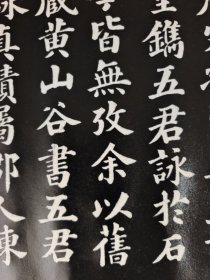 鐫五君詠於石
皆無攷余以舊
藏黃山谷書五君
真蹟屬郡人陳